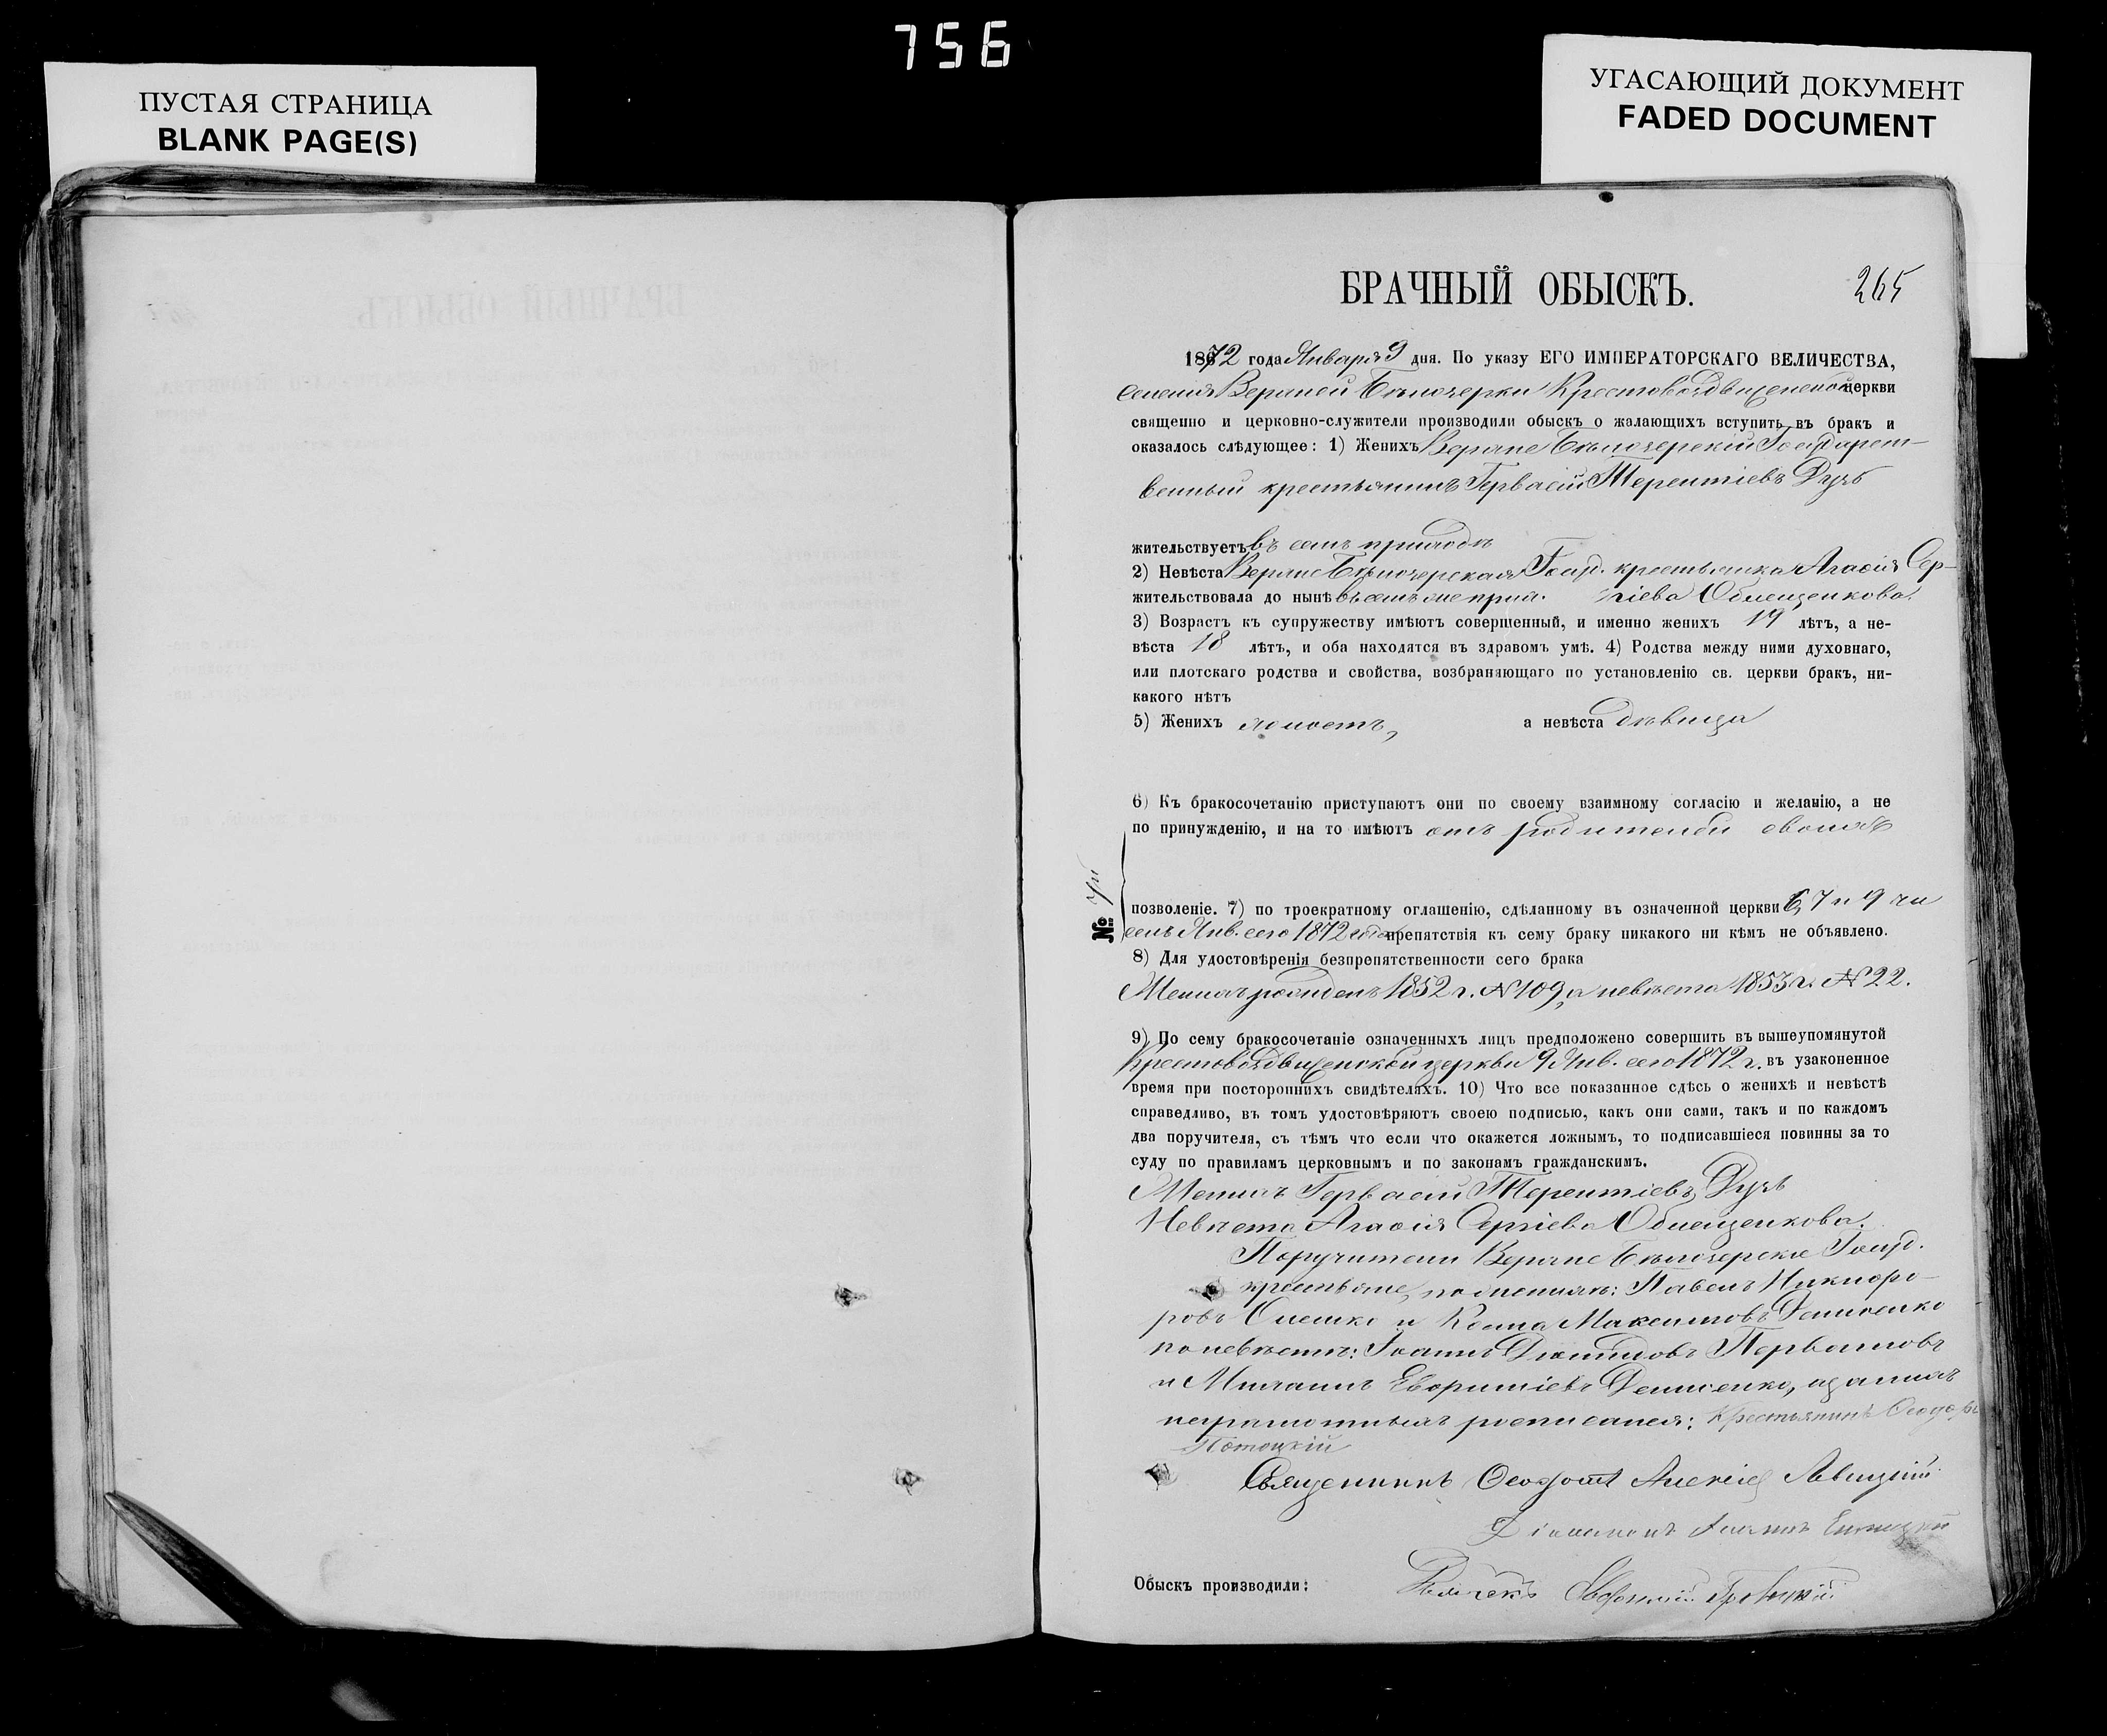 756
ПУСТАЯ СТРАНИЦА
BLANK PAGE(S)
УГАСАЮЩИЙ ДОКУМЕНТ
FADED DOCUMENT
БРАЧНЫЙ ОБЫСКЪ.
265
1872 года Января 9 дня. По указу ЕГО ИМПЕРАТОРСКАГО ВЕЛИЧЕСТВА,
селенія Верхней Бѣлозерки Крестовоздвиженской церкви
священно и церковно-служители производили обыскъ о жалающихъ вступить въ бракъ и
оказалось слѣдующее: 1) Женихъ Верхне Бѣлозерскій Государст-
венный крестьянинъ Гервасій Терентіевъ Дузь
жительствуетъ въ семъ приходѣ
2) Невѣста Верхне Бѣлозерская Госуд. крестьянка Агафія Сер-
жительствовала до нынѣ въ семъ же прих. гіева Облещенкова.
3) Возрастъ къ супружеству имѣютъ совершенный, и именно женихъ 19 лѣтъ, а не-
вѣста 18 лѣтъ, и оба находятся въ здравомъ умѣ. 4) Родства между ними духовнаго,
или плотскаго родства и свойства, возбраняющаго по установленію св. церкви бракъ, ни-
какого нѣтъ
5) Женихъ холостъ, а невѣста дѣвица
6) Къ бракосочетанію приступаютъ они по своему взаимному согласію и желанію, а не
по принужденію, и на то имѣютъ отъ родителей своихъ
№
позволеніе. 7) по троекратному оглашенію, сдѣланному въ означенной церкви 6, 7 и 9 чи
селъ Янв. сего 1872 года препятствія къ сему браку никакого ни кѣмъ не объявлено.
8) Для удостовѣренія безпрепятственности сего брака
Женихъ рожденъ 1852 г. № 109, а невѣста 1853 г. № 22.
9) По сему бракосочетаніе означенныхъ лицъ предположено совершить въ вышеупомянутой
Крестовоздвиженской церкви 9 Янв. сего 1872 г. въ узаконенное
время при постороннихъ свидѣтеляхъ. 10) Что все показанное сдѣсь о женихѣ и невѣстѣ
справедливо, въ томъ удостовѣряютъ своею подписью, какъ они сами, такъ и по каждомъ
два поручителя, съ тѣмъ что если что окажется ложнымъ, то подписавшіеся повинны за то
суду по правиламъ церковнымъ и по законамъ гражданскимъ.
Женихъ Гервасій Терентіевъ Дузь
Невѣста Агафія Сергіева Облещенкова.
Поручители Верхне Бѣлозерскіе Госуд.
крестьяне, по женихѣ: Павелъ Никифо-
ровъ Олешко и Козма Максимовъ Денисенко
по невѣстѣ: Іоаннъ Діомидовъ
и Михаилъ Денисенко, а за нихъ
неграмотныхъ росписался: Крестьянинъ Ѳеодоръ
Потоцкій
Священникъ Алексій Левицкій
Іоаннъ
Обыскъ производили: